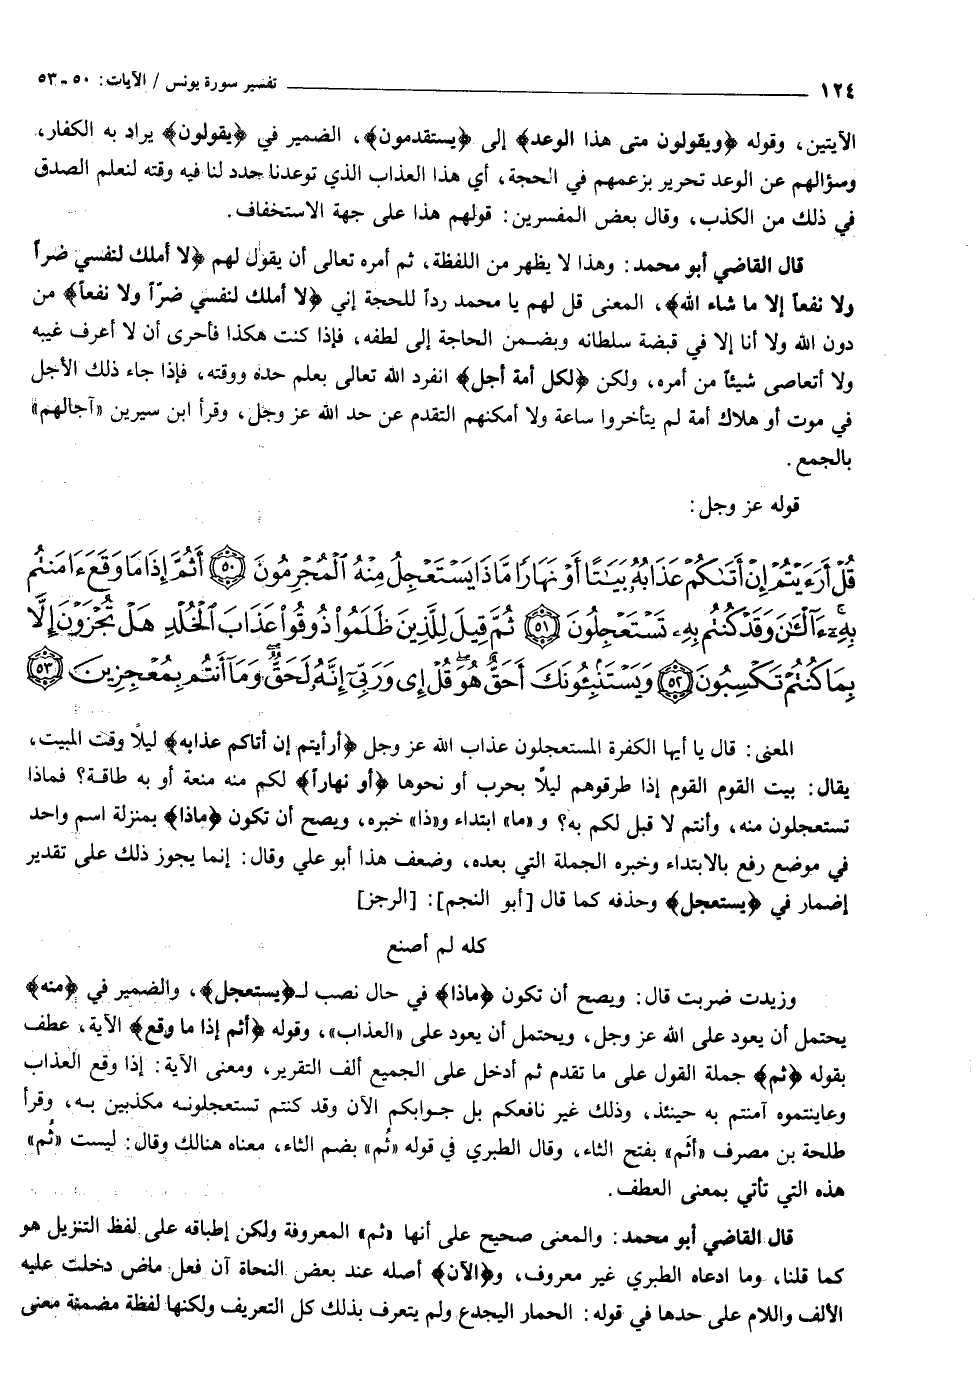 ١٢٤ تفسير سورة يونس / الآيات: ٥٠ ـ ٥٣
الآيتين، وقوله ﴿ويقولون متى هذا الوعد﴾ إلى ﴿يستقدمون﴾، الضمير في ﴿يقولون﴾ يراد به الكفار،
وسؤالهم عن الوعد تحرير بزعمهم في الحجة، أي هذا العذاب الذي توعدنا حدد لنا فيه وقته لنعلم الصدق
في ذلك من الكذب، وقال بعض المفسرين: قولهم هذا على جهة الاستخفاف.
قال القاضي أبو محمد: وهذا لا يظهر من اللفظة، ثم أمره تعالى أن يقول لهم ﴿لا أملك لنفسي ضراً
ولا نفعاً إلا ما شاء الله﴾، المعنى قل لهم يا محمد رداً للحجة إني ﴿لا أملك لنفسي ضرّاً ولا نفعاً﴾ من
دون الله ولا أنا إلا في قبضة سلطانه وبضمن الحاجة إلى لطفه، فإذا كنت هكذا فأحرى أن لا أعرف غيبه
ولا أتعاصى شيئاً من أمره، ولكن ﴿لكل أمة أجل﴾ انفرد الله تعالى بعلم حده ووقته، فإذا جاء ذلك الأجل
في موت أو هلاك أمة لم يتأخروا ساعة ولا أمكنهم التقدم عن حد الله عز وجل، وقرأ ابن سيرين «آجالهم»
بالجمع.
قوله عز وجل:
قُلْ أَرَءَيْتُمْ إِنْ أَتَىٰكُمْ عَذَابُهُۥ بَيَٰتًا أَوْ نَهَارًا مَّاذَا يَسْتَعْجِلُ مِنْهُ ٱلْمُجْرِمُونَ ﴿٥٠﴾ أَثُمَّ إِذَا مَا وَقَعَ ءَامَنتُم
بِهِۦٓ ءَآلْـَٰٔنَ وَقَدْ كُنتُم بِهِۦ تَسْتَعْجِلُونَ ﴿٥١﴾ ثُمَّ قِيلَ لِلَّذِينَ ظَلَمُوا۟ ذُوقُوا۟ عَذَابَ ٱلْخُلْدِ هَلْ تُجْزَوْنَ إِلَّا
بِمَا كُنتُمْ تَكْسِبُونَ ﴿٥٢﴾ وَيَسْتَنۢبِـُٔونَكَ أَحَقٌّ هُوَ ۖ قُلْ إِى وَرَبِّىٓ إِنَّهُۥ لَحَقٌّ ۖ وَمَآ أَنتُم بِمُعْجِزِينَ ﴿٥٣﴾
المعنى: قال يا أيها الكفرة المستعجلون عذاب الله عز وجل ﴿أرأيتم إن أتاكم عذابه﴾ ليلًا وقت المبيت،
يقال: بيت القوم القوم إذا طرقوهم ليلًا بحرب أو نحوها ﴿أو نهاراً﴾ لكم منه منعة أو به طاقة؟ فماذا
تستعجلون منه، وأنتم لا قبل لكم به؟ و«ما» ابتداء و«ذا» خبره، ويصح أن تكون ﴿ماذا﴾ بمنزلة اسم واحد
في موضع رفع بالابتداء وخبره الجملة التي بعده، وضعف هذا أبو علي وقال: إنما يجوز ذلك على تقدير
إضمار في ﴿يستعجل﴾ وحذفه كما قال [أبو النجم]: [الرجز]
كله لم أصنع
وزيدت ضربت قال: ويصح أن تكون ﴿ماذا﴾ في حال نصب لـ﴿يستعجل﴾، والضمير في ﴿منه﴾
يحتمل أن يعود على الله عز وجل، ويحتمل أن يعود على «العذاب»، وقوله ﴿أثم إذا ما وقع﴾ الآية، عطف
بقوله ﴿ثم﴾ جملة القول على ما تقدم ثم أدخل على الجميع ألف التقرير، ومعنى الآية: إذا وقع العذاب
وعاينتموه آمنتم به حينئذ، وذلك غير نافعكم بل جوابكم الآن وقد كنتم تستعجلونه مكذبين به، وقرأ
طلحة بن مصرف «أثَم» بفتح الثاء، وقال الطبري في قوله «ثُم» بضم الثاء، معناه هنالك وقال: ليست «ثُم»
هذه التي تأتي بمعنى العطف.
قال القاضي أبو محمد: والمعنى صحيح على أنها «ثم» المعروفة ولكن إطباقه على لفظ التنزيل هو
كما قلنا، وما ادعاه الطبري غير معروف، و﴿الآن﴾ أصله عند بعض النحاة آن فعل ماض دخلت عليه
الألف واللام على حدها في قوله: الحمار اليجدع ولم يتعرف بذلك كل التعريف ولكنها لفظة مضمنة معنى